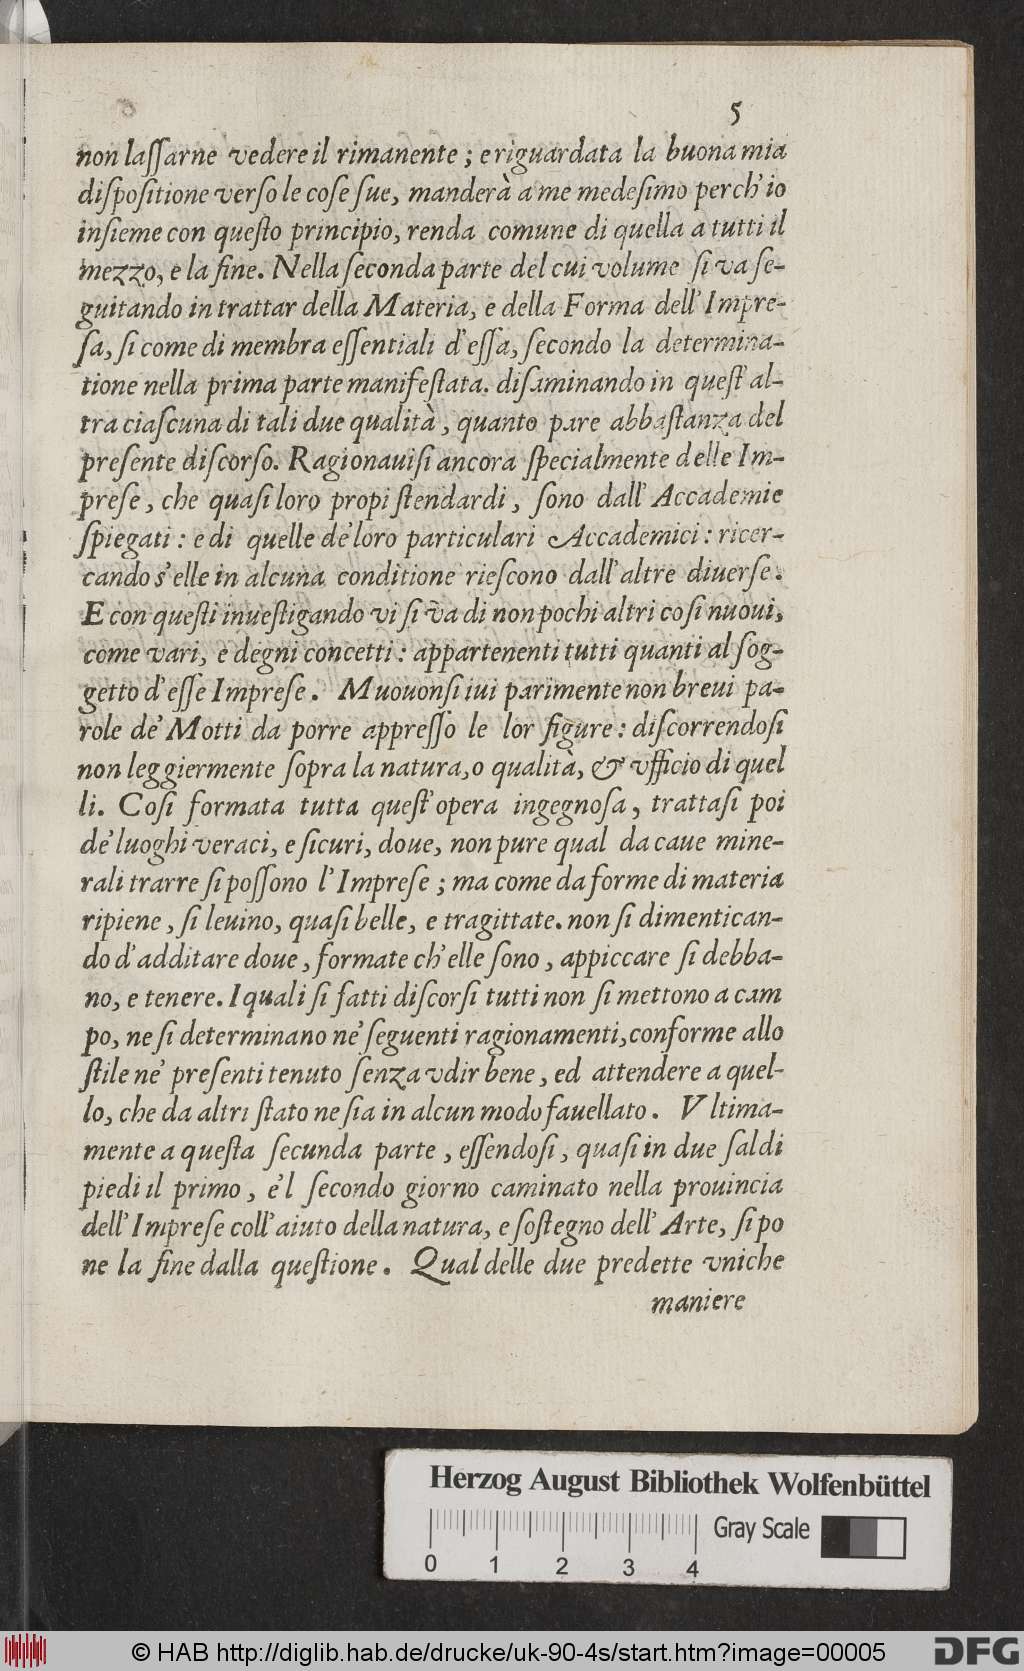 5
non laſſarne vedere il rimanente ; e riguardata la buona mia
diſpoſitione verſo le coſe ſue, manderà a me medeſimo perch' io
inſieme con queſto principio, renda comune di quella a tutti il
mezzo, e la fine. Nella ſeconda parte del cui volume ſi va ſe-
guitando in trattar della Materia, e della Forma dell' Impre-
ſa, ſi come di membra eſſentiali d' eſſa, ſecondo la determina-
tione nella prima parte manifeſtata. diſaminando in queſt' al-
tra ciaſcuna di tali due qualità, quanto pare abbaſtanza del
preſente diſcorſo. Ragionauiſi ancora ſpecialmente delle Im-
preſe, che quaſi loro propi ſtendardi, ſono dall' Accademie
ſpiegati : e di quelle de' loro particulari Accademici : ricer-
cando s' elle in alcuna conditione rieſcono dall' altre diuerſe.
E con queſti inueſtigando vi ſi và di non pochi altri coſi nuoui,
come vari, e degni concetti : appartenenti tutti quanti al ſog-
getto d' eſſe Impreſe. Muouonſi iui parimente non breui pa-
role de' Motti da porre appreſſo le lor figure : diſcorrendoſi
non leggiermente ſopra la natura, o qualità, & vfficio di quel
li. Coſi formata tutta queſt' opera ingegnoſa, trattaſi poi
de' luoghi veraci, e ſicuri, doue, non pure qual da caue mine-
rali trarre ſi poſſono l' Impreſe ; ma come da forme di materia
ripiene, ſi leuino, quaſi belle, e tragittate. non ſi dimentican-
do d' additare doue, formate ch' elle ſono, appiccare ſi debba-
no, e tenere. I quali ſi fatti diſcorſi tutti non ſi mettono a cam
po, ne ſi determinano ne' ſeguenti ragionamenti, conforme allo
ſtile ne' preſenti tenuto ſenza vdir bene, ed attendere a quel-
lo, che da altri ſtato ne ſia in alcun modo fauellato. Vltima-
mente a queſta ſecunda parte, eſſendoſi, quaſi in due ſaldi
piedi il primo, e'l ſecondo giorno caminato nella prouincia
dell' Impreſe coll' aiuto della natura, e ſoſtegno dell' Arte, ſi po
ne la fine dalla queſtione. Qual delle due predette vniche
maniere
Herzog August Bibliothek Wolfenbüttel
Gray Scale
0 1 2 3 4
© HAB http://diglib.hab.de/drucke/uk-90-4s/start.htm?image=00005
DFG